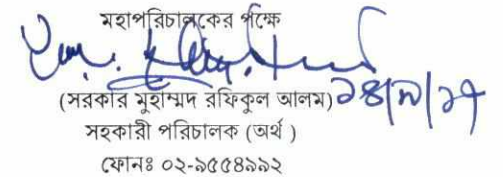 মহাপরিচালকের পক্ষে
(সরকার মুহাম্মদ রফিকুল আলম)
সহকারী পরিচালক (অর্থ )
ফোনঃ ০২-৯৫৫৪৯৯২